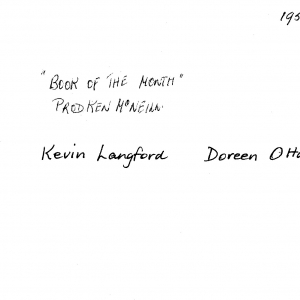 195
"BOOK OF THE MONTH"
PROD KEN McNEILL.
Kevin Langford Doreen Otto